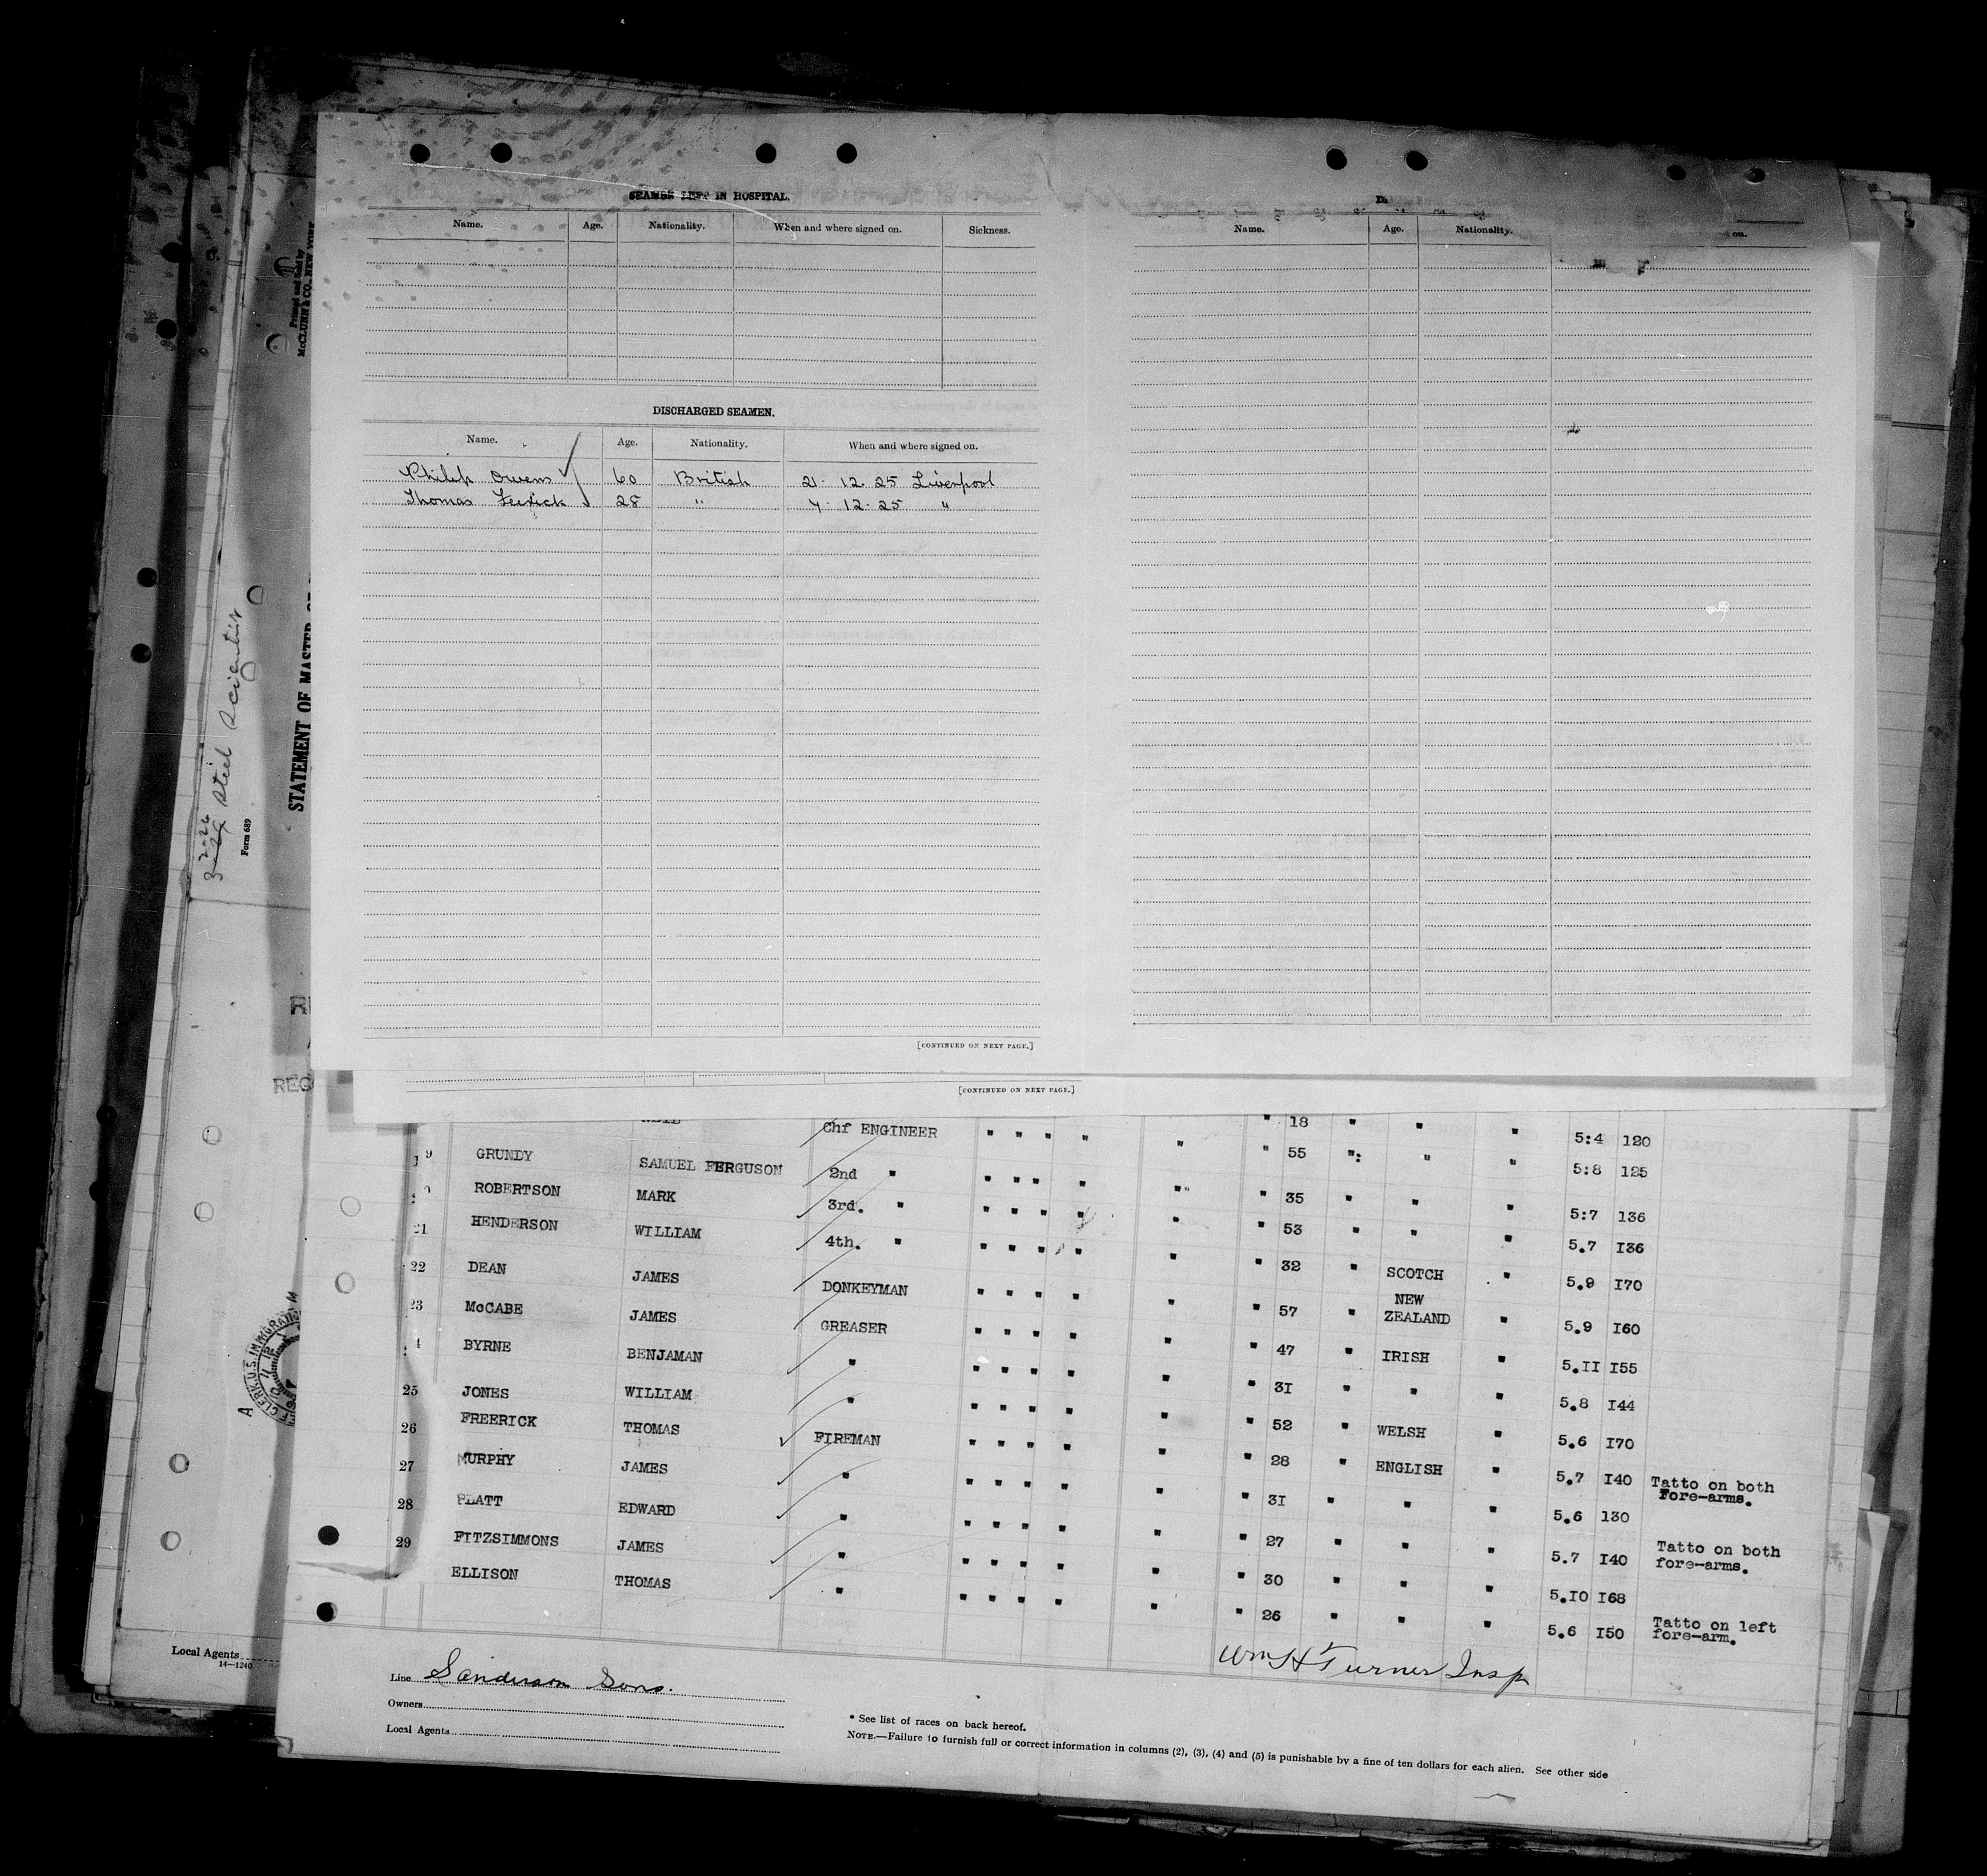 SEAMEN LEFT IN HOSPITAL.
Name. Age. Nationality. When and where signed on. Sickness.
DISCHARGED SEAMEN.
Name. Age. Nationality. When and where signed on.
Philip Owens 60 British 21. 12. 25 Liverpool
Thomas 28 " 4. 12. 25 "
[CONTINUED ON NEXT PAGE.]
Name. Age. Nationality. on.
[CONTINUED ON NEXT PAGE.]
Printed and Sold by
McCLUNN & CO. NEW YORK
STATEMENT OF MASTER
Form 689
Steel Scientist
Chf ENGINEER " " " " " " 18 " " " 5:4 120
19 GRUNDY SAMUEL FERGUSON 2nd " " " " " " " 55 ": " " 5:8 125
ROBERTSON MARK 3rd. " " " " " " " 35 " " " 5:7 136
21 HENDERSON WILLIAM 4th. " " " " " " " 53 " " " 5.7 I36
22 DEAN JAMES DONKEYMAN " " " " " " 32 " SCOTCH " 5.9 I70
23 McCABE JAMES GREASER " " " " " " 57 " NEW ZEALAND " 5.9 I60
BYRNE BENJAMAN " " " " " " " 47 " IRISH " 5.II I55
25 JONES WILLIAM " " " " " " " 3I " " " 5.8 I44
26 FREERICK THOMAS FIREMAN " " " " " " 52 " WELSH " 5.6 I70
27 MURPHY JAMES " " " " " " " 28 " ENGLISH " 5.7 I40 Tatto on both Fore-arms.
28 PLATT EDWARD " " " " " " " 3I " " " 5.6 130
29 FITZSIMMONS JAMES " " " " " " " 27 " " " 5.7 I40 Tatto on both fore-arms.
ELLISON THOMAS " " " " " " " 30 " " " 5.IO I68
" 26 " " " 5.6 I50 Tatto on left fore-arm.
Wm H Turner Insp
Line Sanderson Sons.
Owners
Local Agents
* See list of races on back hereof.
NOTE.—Failure to furnish full or correct information in columns (2), (3), (4) and (5) is punishable by a fine of ten dollars for each alien. See other side
Local Agents
14—1240